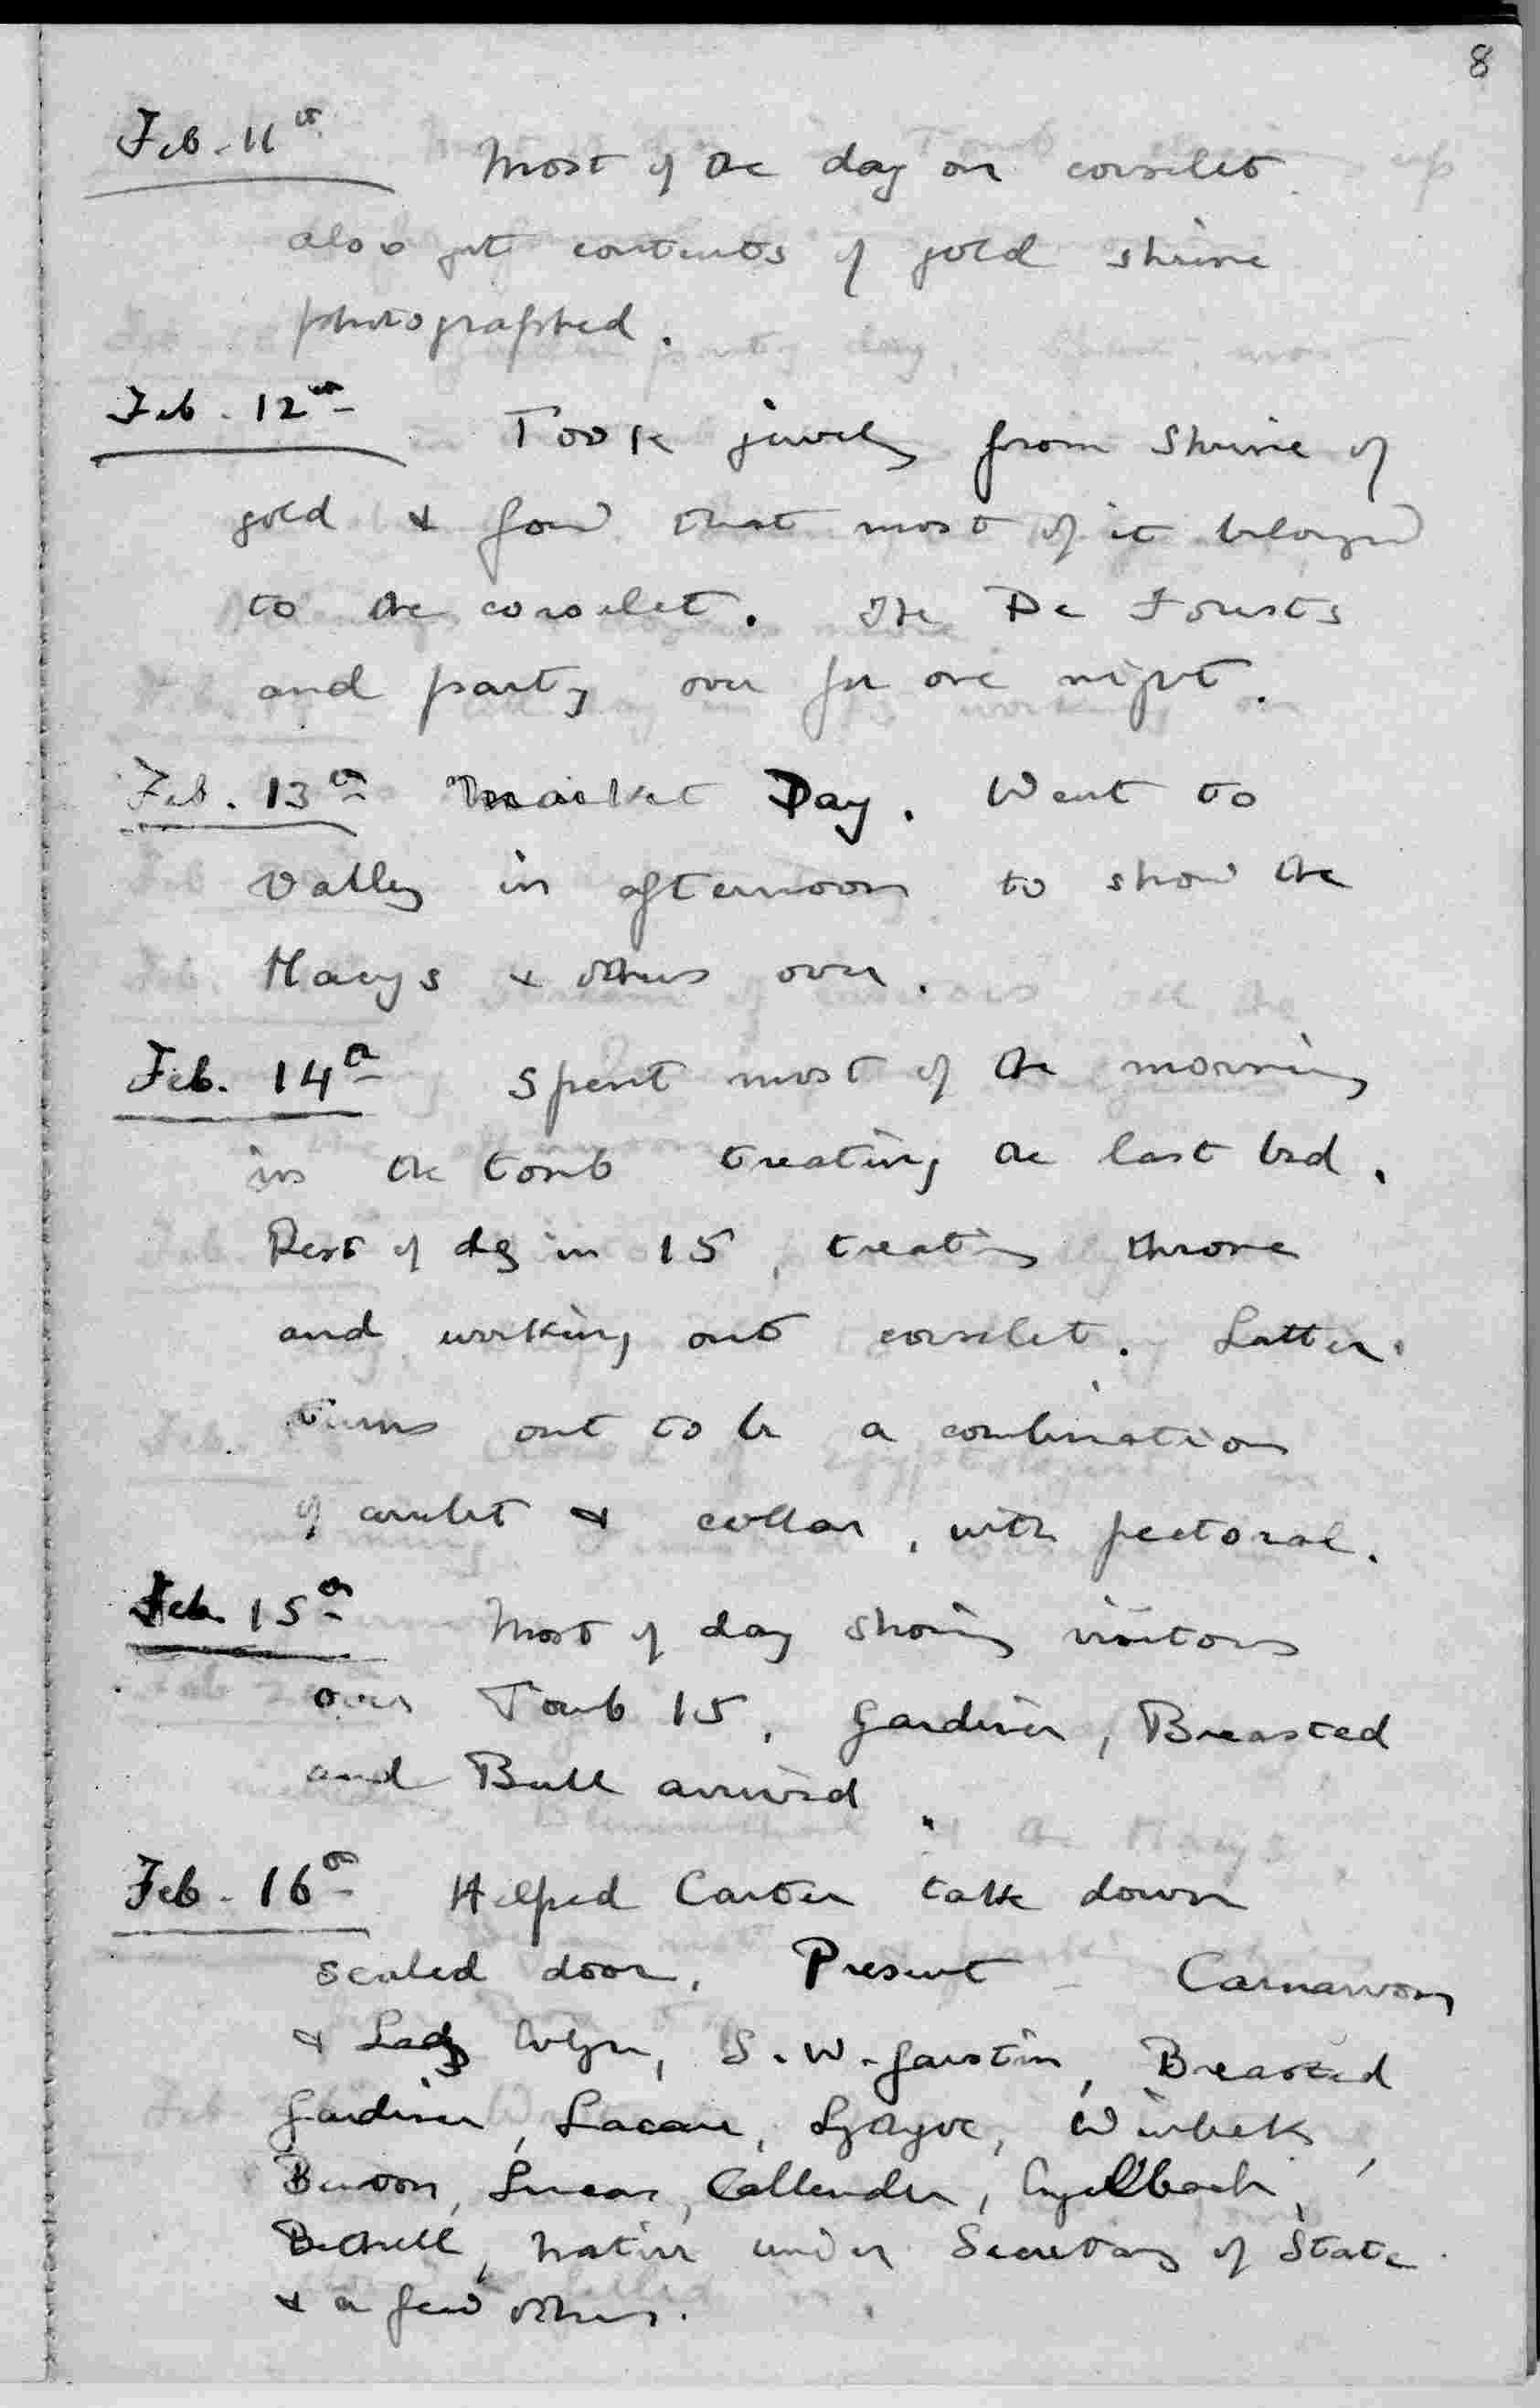 8
Feb. 11th
Most of the day on corselet.
also got contents of gold shrine
photographed.
Feb. 12th Took jewels from shrine of
gold & found that most of it belonged
to the corselet. The De Forests
and party over for one night.
Feb. 13th Market Day. Went to
Valley in afternoon to show the
Macys & others over.
Feb. 14th Spent most of the morning
in the tomb treating the last bed.
Rest of day in 15, treating throne
and working out corselet. Latter
turns out to be a combination
of corselet & collar, with pectoral.
Feb. 15th Most of day showing visitors
over Tomb 15. Gardiner, Breasted
and Bull arrived.
Feb. 16th Helped Carter take down
sealed door. Present - Carnarvon
& Lady Evelyn, S. W. Garstin, Breasted
Gardiner, Lacau, Lythgoe, Winlock,
Burton, Lucas, Callender, Engelbach,
Bethell, native under Secretary of State
& a few others.